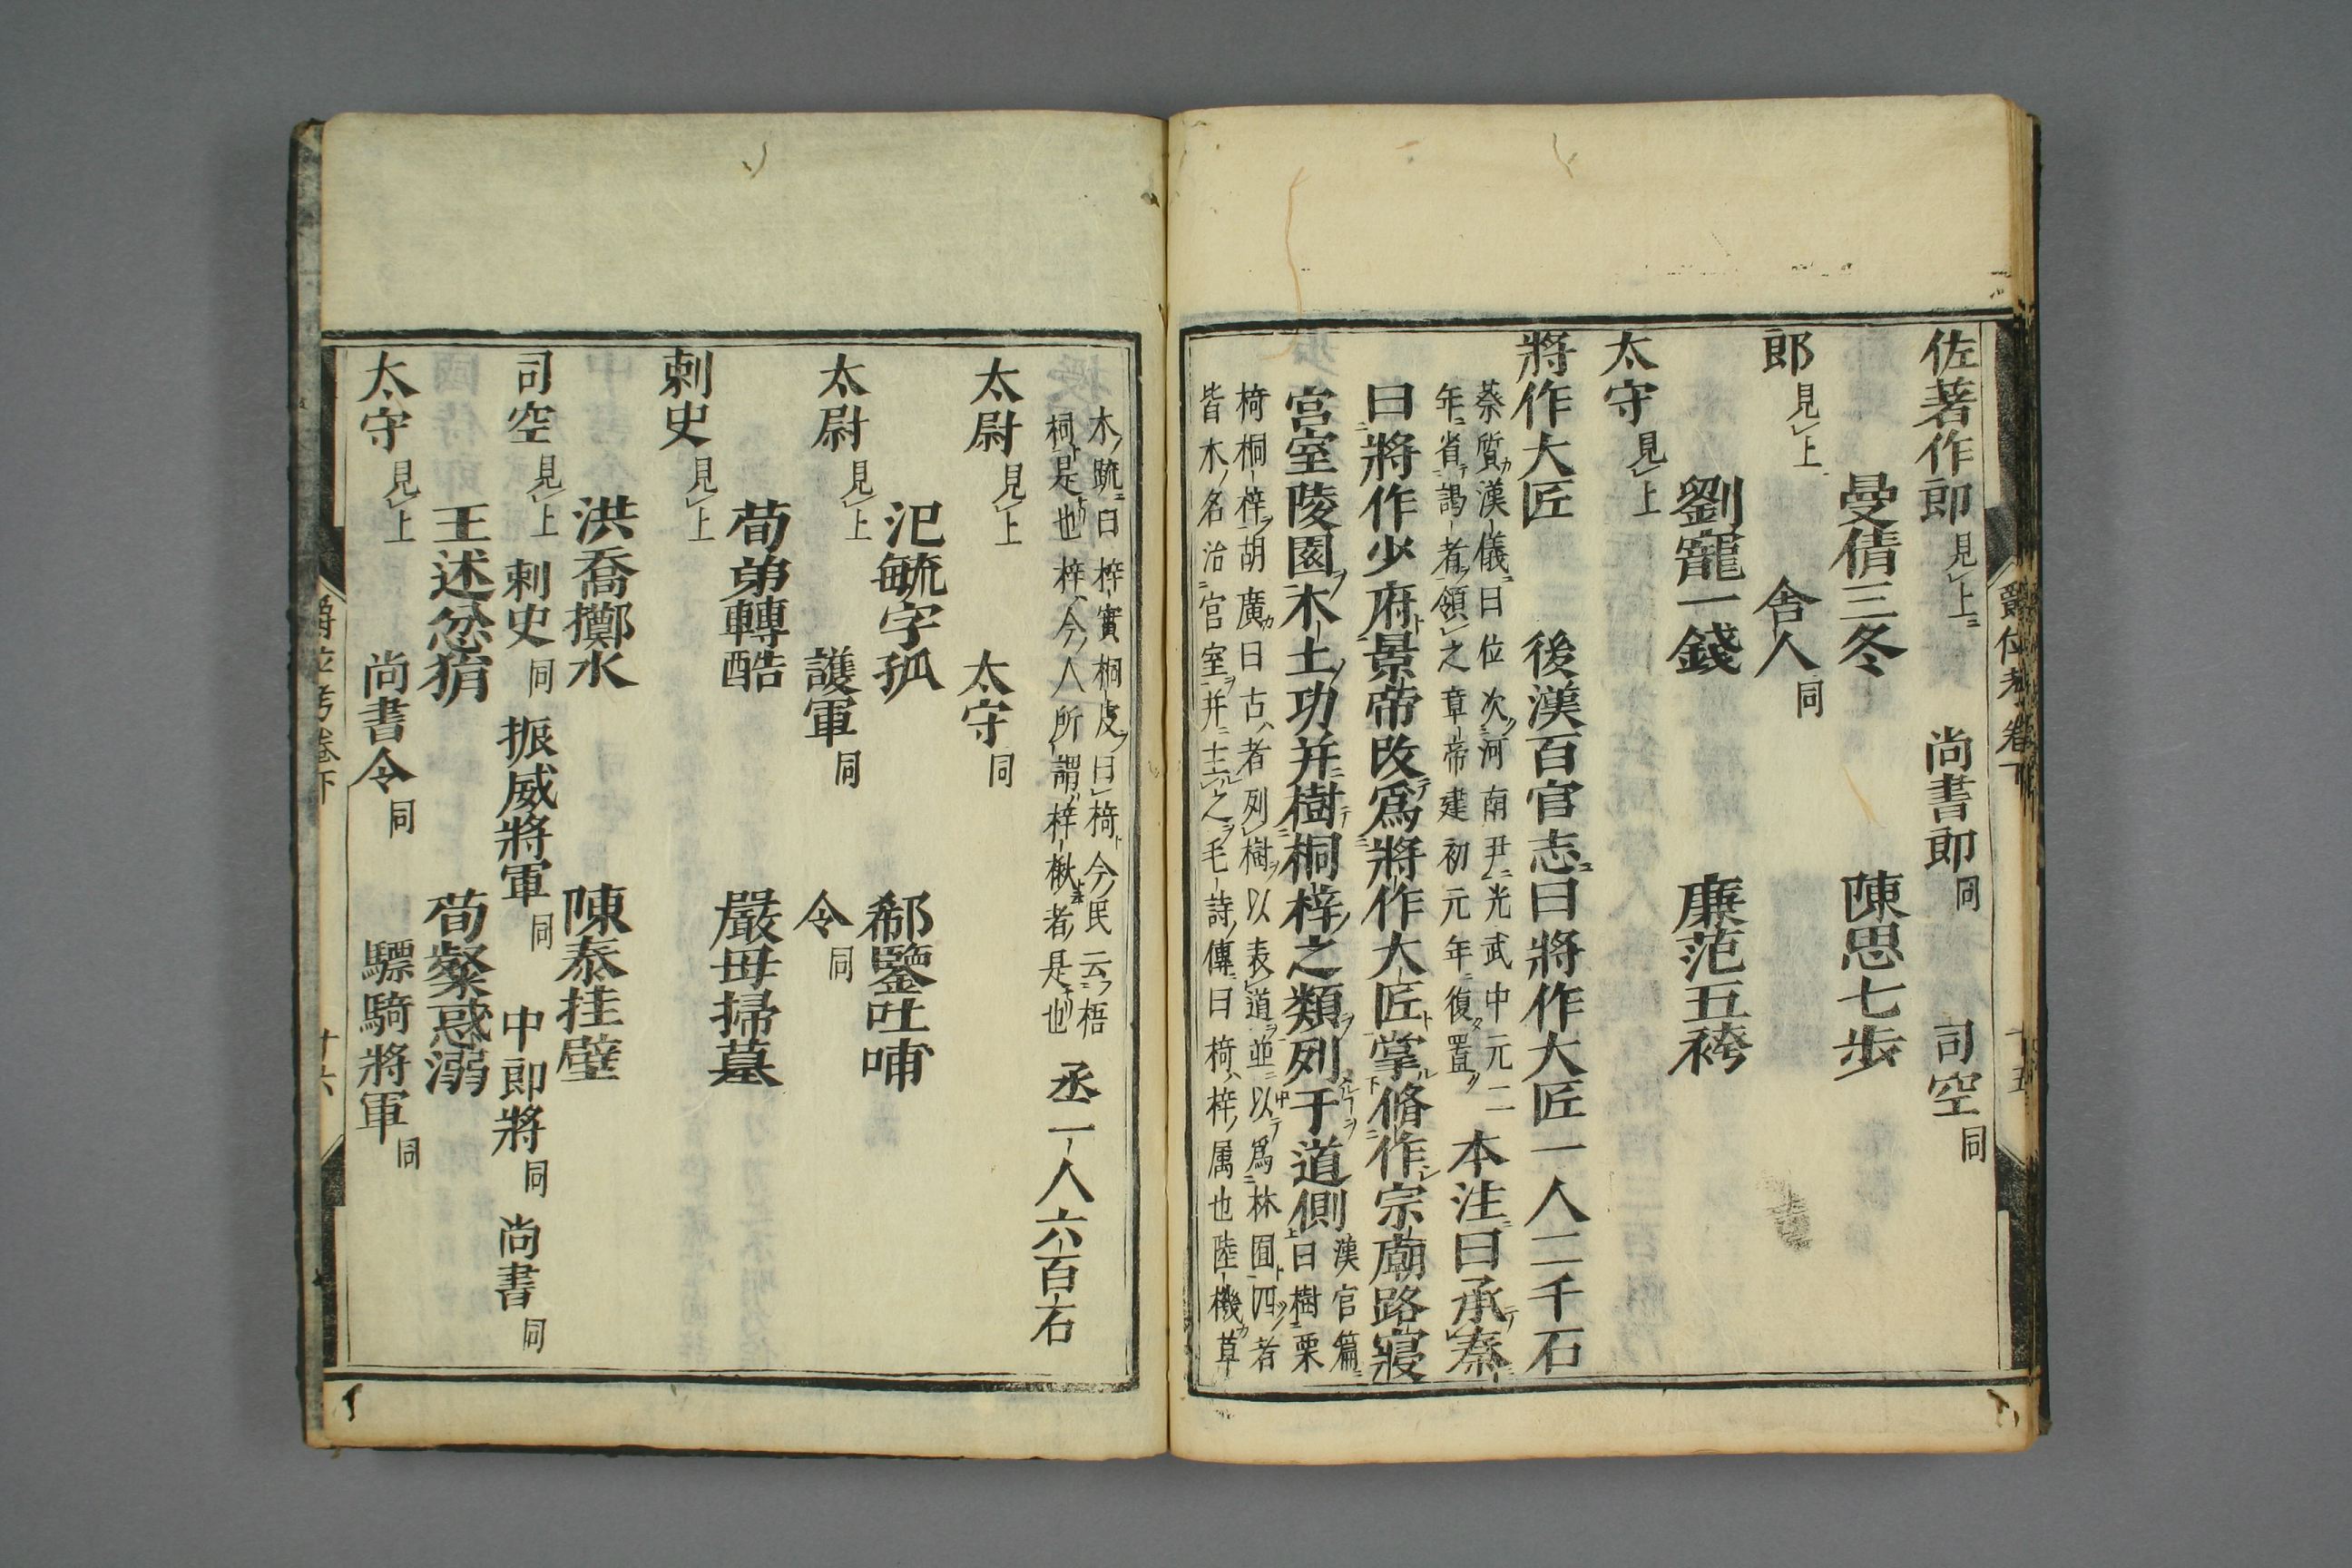 佐著作郎見上 尚書郎同 司空同
曼倩三冬 陳思七歩
郎見上 舎人同
劉寵一錢 廉范五袴
太守見上
將作大匠 後漢百官志曰將作大匠一人二千石
蔡質漢儀曰位次河南尹光武中元二
年省謁者領之章帝建初元年復置
本注曰承秦
曰將作少府景帝改爲將作大匠掌脩作宗廟路寢
宮室陵園木土功并樹桐梓之類列于道側
漢官篇
曰樹栗
椅桐梓胡廣曰古者列樹以表道並以爲林囿四者
皆木名治宮室并主之毛詩傳曰椅梓属也陸機草
木疏曰梓實桐皮曰椅今民云梧
桐是也梓今人所謂梓楸者是也
丞一人六百石
太尉見上 太守同
氾毓字孤 郗鑒吐哺
太尉見上 護軍同 令同
荀弟轉酷 嚴母掃墓
刺史見上
洪喬擲水 陳泰挂壁
司空見上 刺史同 振威將軍同 中郎將同 尚書同
王述忿狷 荀粲惑溺
太守見上 尚書令同 驃騎將軍同
爵位考卷下 十五
爵位考卷下 十六